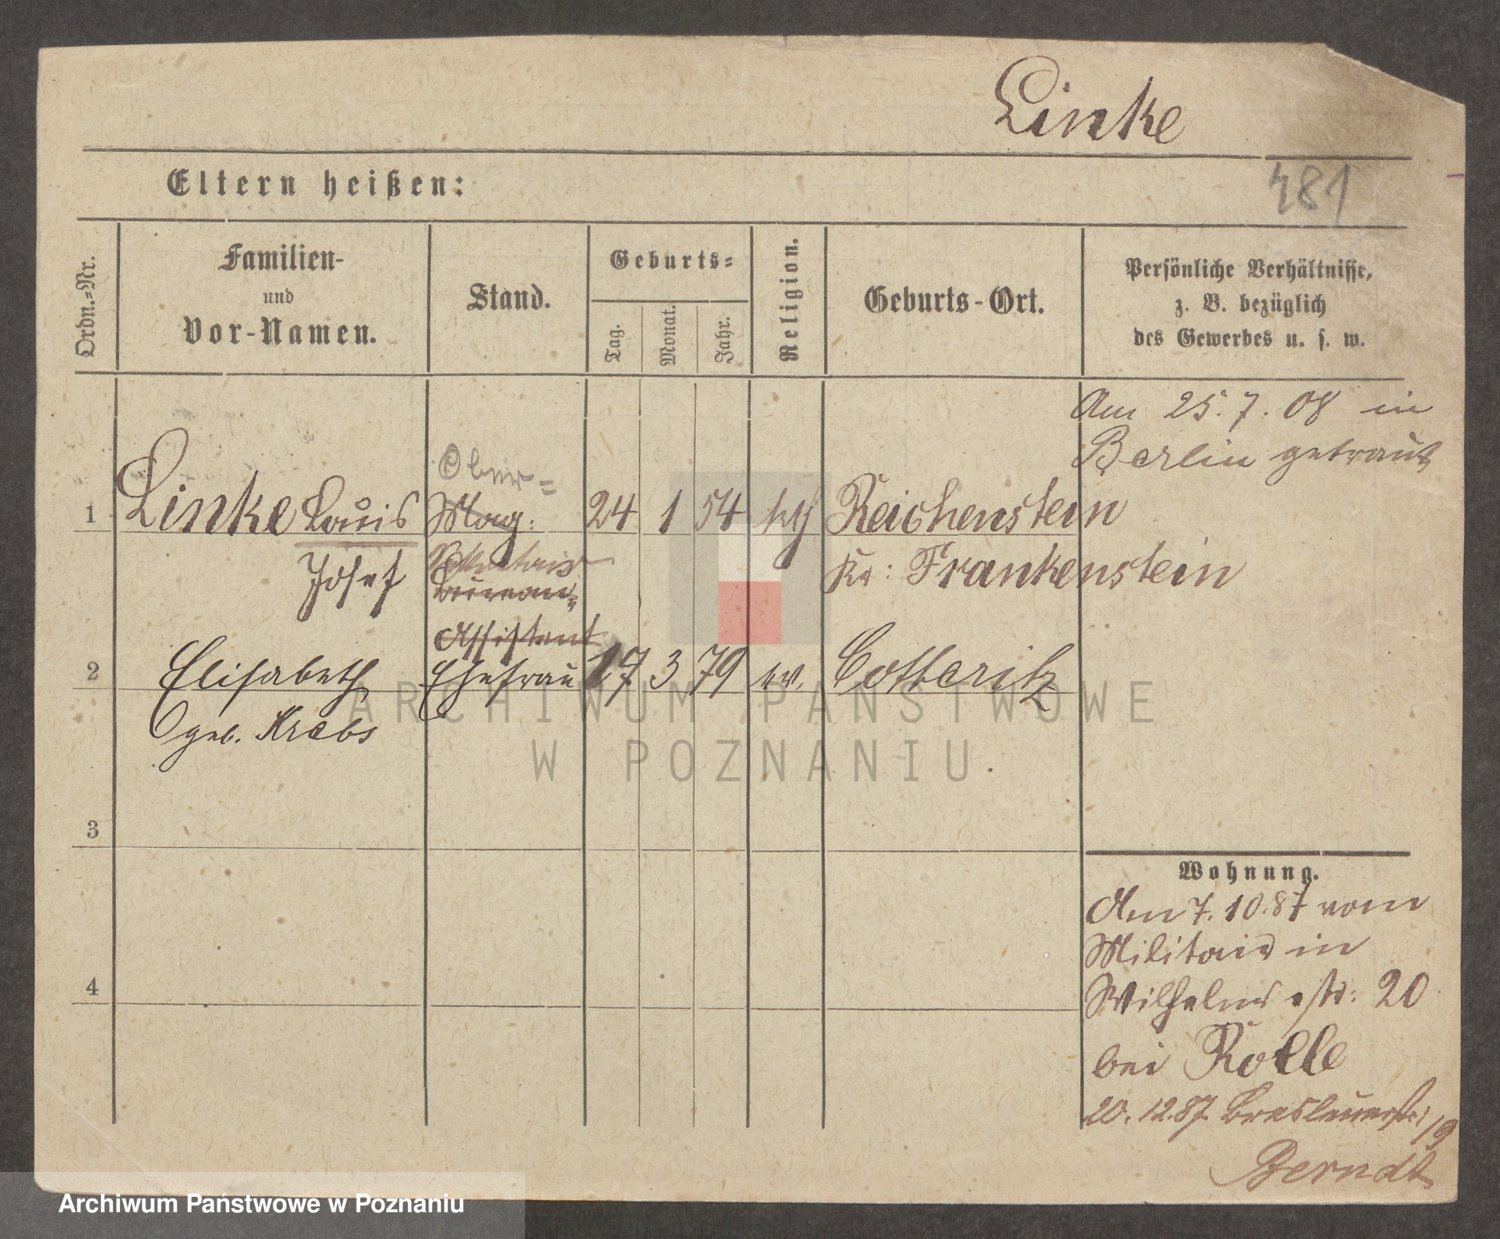 Linke
481
Eltern heißen:
Ordn.=Nr.
Familien-
und
Vor-Namen.
Stand.
Geburts=
Tag.
Monat.
Jahr.
Religion.
Geburts-Ort.
Persönliche Verhältnisse,
z. B. bezüglich
des Gewerbes u. s. w.
Am 25. 7. 08 in
Berlin getraut
Ober=
1 Linke Louis Mag: 24 1 54 kth Reichenstein
Josef Sekretair Kr: Frankenstein
Bureau=
Assistent
2 Elisabeth Ehefrau 17 3 79 ev. Cotteritz
geb. Krebs
3
4
Wohnung.
Am 7. 10. 87 vom
Militair in
Wilhelms str: 20
bei Rolle
20. 12. 87 Breslauerstr: 19
Berndt
ARCHIWUM PAŃSTWOWE
W POZNANIU
Archiwum Państwowe w Poznaniu